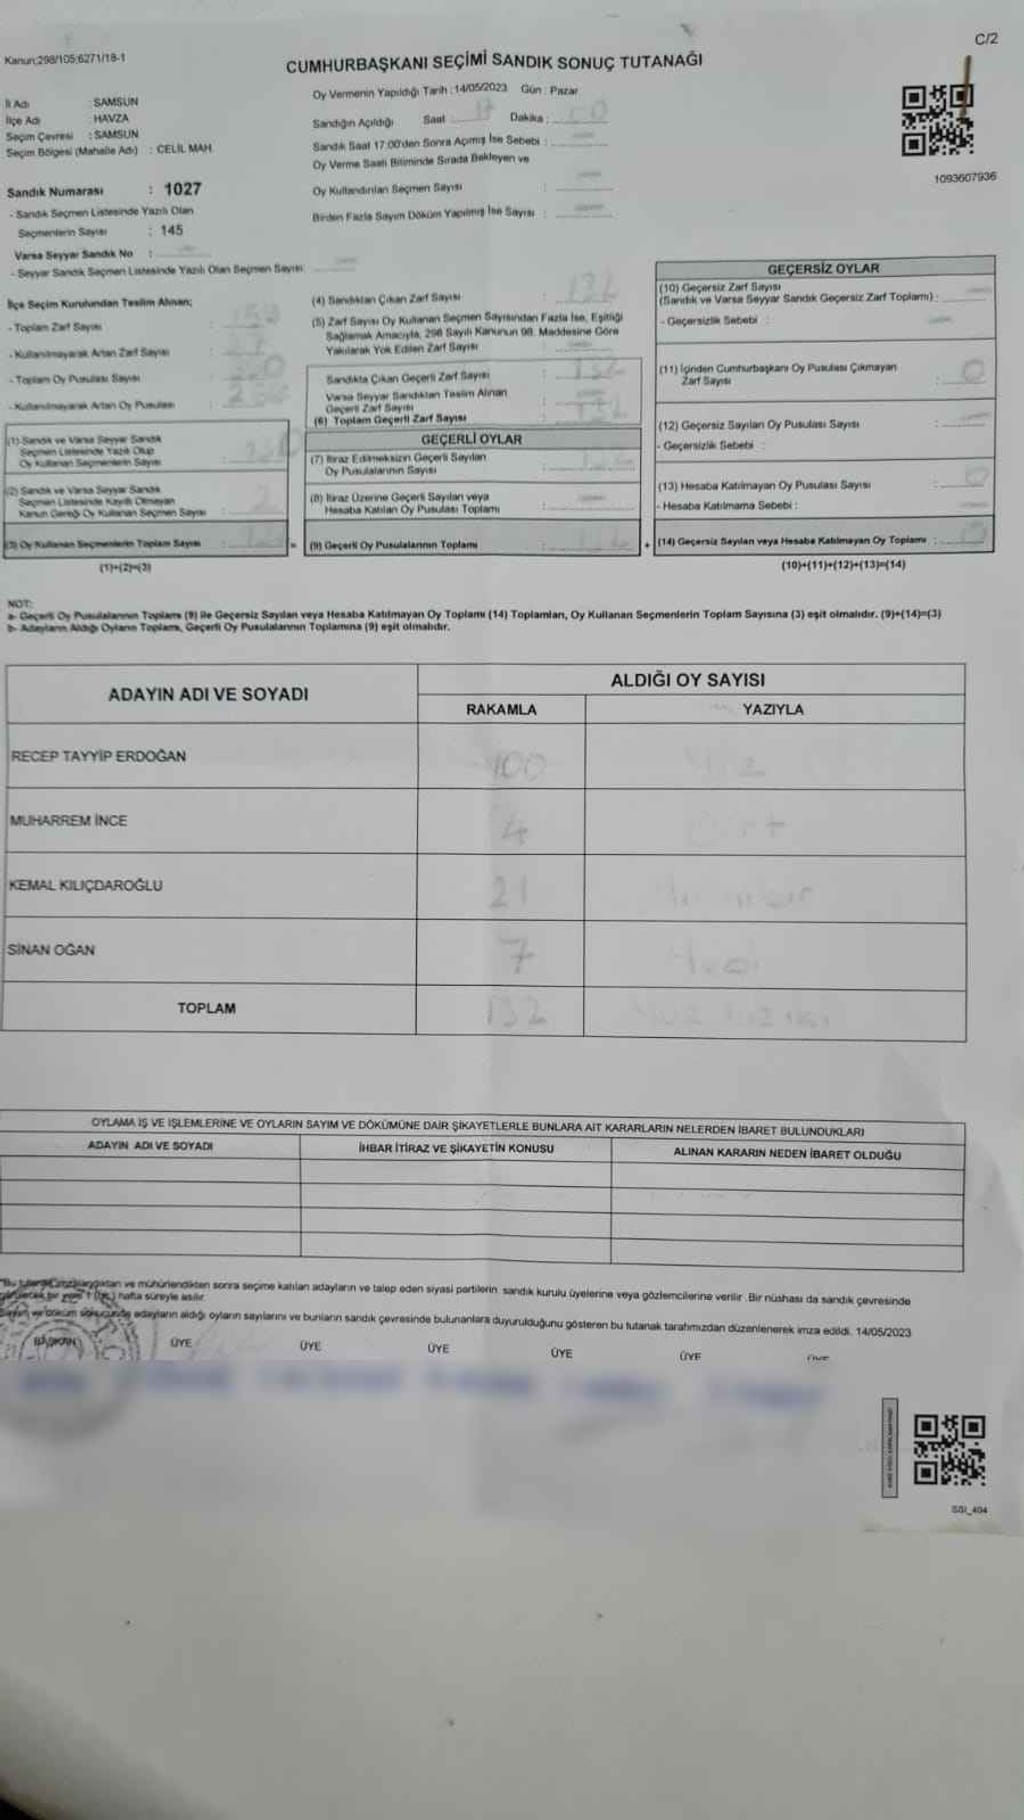 C/2
Kanun;298/105;6271/18-1
CUMHURBAŞKANI SEÇİMİ SANDIK SONUÇ TUTANAĞI
Oy Vermenin Yapıldığı Tarih : 14/05/2023 Gün : Pazar
İl Adı : SAMSUN
İlçe Adı : HAVZA
Seçim Çevresi : SAMSUN
Seçim Bölgesi (Mahalle Adı) : CELİL MAH.
Sandığın Açıldığı Saat 17 Dakika : 00
Sandık Saat 17:00'den Sonra Açımış İse Sebebi :
Oy Verme Saati Bitiminde Sırada Bekleyen ve
Oy Kullandırılan Seçmen Sayısı :
Birden Fazla Sayım Döküm Yapılmış İse Sayısı :
1093607936
Sandık Numarası : 1027
- Sandık Seçmen Listesinde Yazılı Olan
Seçmenlerin Sayısı : 145
Varsa Seyyar Sandık No :
- Seyyar Sandık Seçmen Listesinde Yazılı Olan Seçmen Sayısı:
İlçe Seçim Kurulundan Teslim Alınan;
- Toplam Zarf Sayısı :
- Kullanılmayarak Artan Zarf Sayısı :
- Toplam Oy Pusulası Sayısı :
- Kullanılmayarak Artan Oy Pusulası :
(1) Sandık ve Varsa Seyyar Sandık
Seçmen Listesinde Yazılı Olup
Oy Kullanan Seçmenlerin Sayısı :
(2) Sandık ve Varsa Seyyar Sandık
Seçmen Listesinde Kayıtlı Olmayan
Kanun Gereği Oy Kullanan Seçmen Sayısı : 2
(3) Oy Kullanan Seçmenlerin Toplam Sayısı :
(1)+(2)=(3)
(4) Sandıktan Çıkan Zarf Sayısı : 132
(5) Zarf Sayısı Oy Kullanan Seçmen Sayısından Fazla İse, Eşitliği
Sağlamak Amacıyla, 298 Sayılı Kanunun 98. Maddesine Göre
Yakılarak Yok Edilen Zarf Sayısı :
Sandıkta Çıkan Geçerli Zarf Sayısı : 132
Varsa Seyyar Sandıktan Teslim Alınan
Geçerli Zarf Sayısı
(6) Toplam Geçerli Zarf Sayısı : 132
GEÇERLİ OYLAR
(7) İtiraz Edilmeksizin Geçerli Sayılan
Oy Pusulalarının Sayısı : 132
(8) İtiraz Üzerine Geçerli Sayılan veya
Hesaba Katılan Oy Pusulası Toplamı :
= (9) Geçerli Oy Pusulalarının Toplamı : 132
GEÇERSİZ OYLAR
(10) Geçersiz Zarf Sayısı
(Sandık ve Varsa Seyyar Sandık Geçersiz Zarf Toplamı) :
- Geçersizlik Sebebi :
(11) İçinden Cumhurbaşkanı Oy Pusulası Çıkmayan
Zarf Sayısı : 0
(12) Geçersiz Sayılan Oy Pusulası Sayısı :
- Geçersizlik Sebebi :
(13) Hesaba Katılmayan Oy Pusulası Sayısı : 0
- Hesaba Katılmama Sebebi :
+ (14) Geçersiz Sayılan veya Hesaba Katılmayan Oy Toplamı : 0
(10)+(11)+(12)+(13)=(14)
NOT:
a- Geçerli Oy Pusulalarının Toplamı (9) ile Geçersiz Sayılan veya Hesaba Katılmayan Oy Toplamı (14) Toplamları, Oy Kullanan Seçmenlerin Toplam Sayısına (3) eşit olmalıdır. (9)+(14)=(3)
b- Adayların Aldığı Oyların Toplamı, Geçerli Oy Pusulalarının Toplamına (9) eşit olmalıdır.
ADAYIN ADI VE SOYADI ALDIĞI OY SAYISI
RAKAMLA YAZIYLA
RECEP TAYYİP ERDOĞAN 100 Yüz
MUHARREM İNCE 4 Dört
KEMAL KILIÇDAROĞLU 21
SİNAN OĞAN 7 Yedi
TOPLAM 132 Yüz otuz iki
OYLAMA İŞ VE İŞLEMLERİNE VE OYLARIN SAYIM VE DÖKÜMÜNE DAİR ŞİKAYETLERLE BUNLARA AİT KARARLARIN NELERDEN İBARET BULUNDUKLARI
ADAYIN ADI VE SOYADI İHBAR İTİRAZ VE ŞİKAYETİN KONUSU ALINAN KARARIN NEDEN İBARET OLDUĞU
*Bu tutanak imzalandıktan ve mühürlendikten sonra seçime katılan adayların ve talep eden siyasi partilerin sandık kurulu üyelerine veya gözlemcilerine verilir. Bir nüshası da sandık çevresinde
bir yere 1 hafta süreyle asılır.
Sayım ve döküm sonucunda adayların aldığı oyların sayılarını ve bunların sandık çevresinde bulunanlara duyurulduğunu gösteren bu tutanak tarafımızdan düzenlenerek imza edildi. 14/05/2023
BAŞKAN ÜYE ÜYE ÜYE ÜYE ÜYE ÜYE
SSI_404